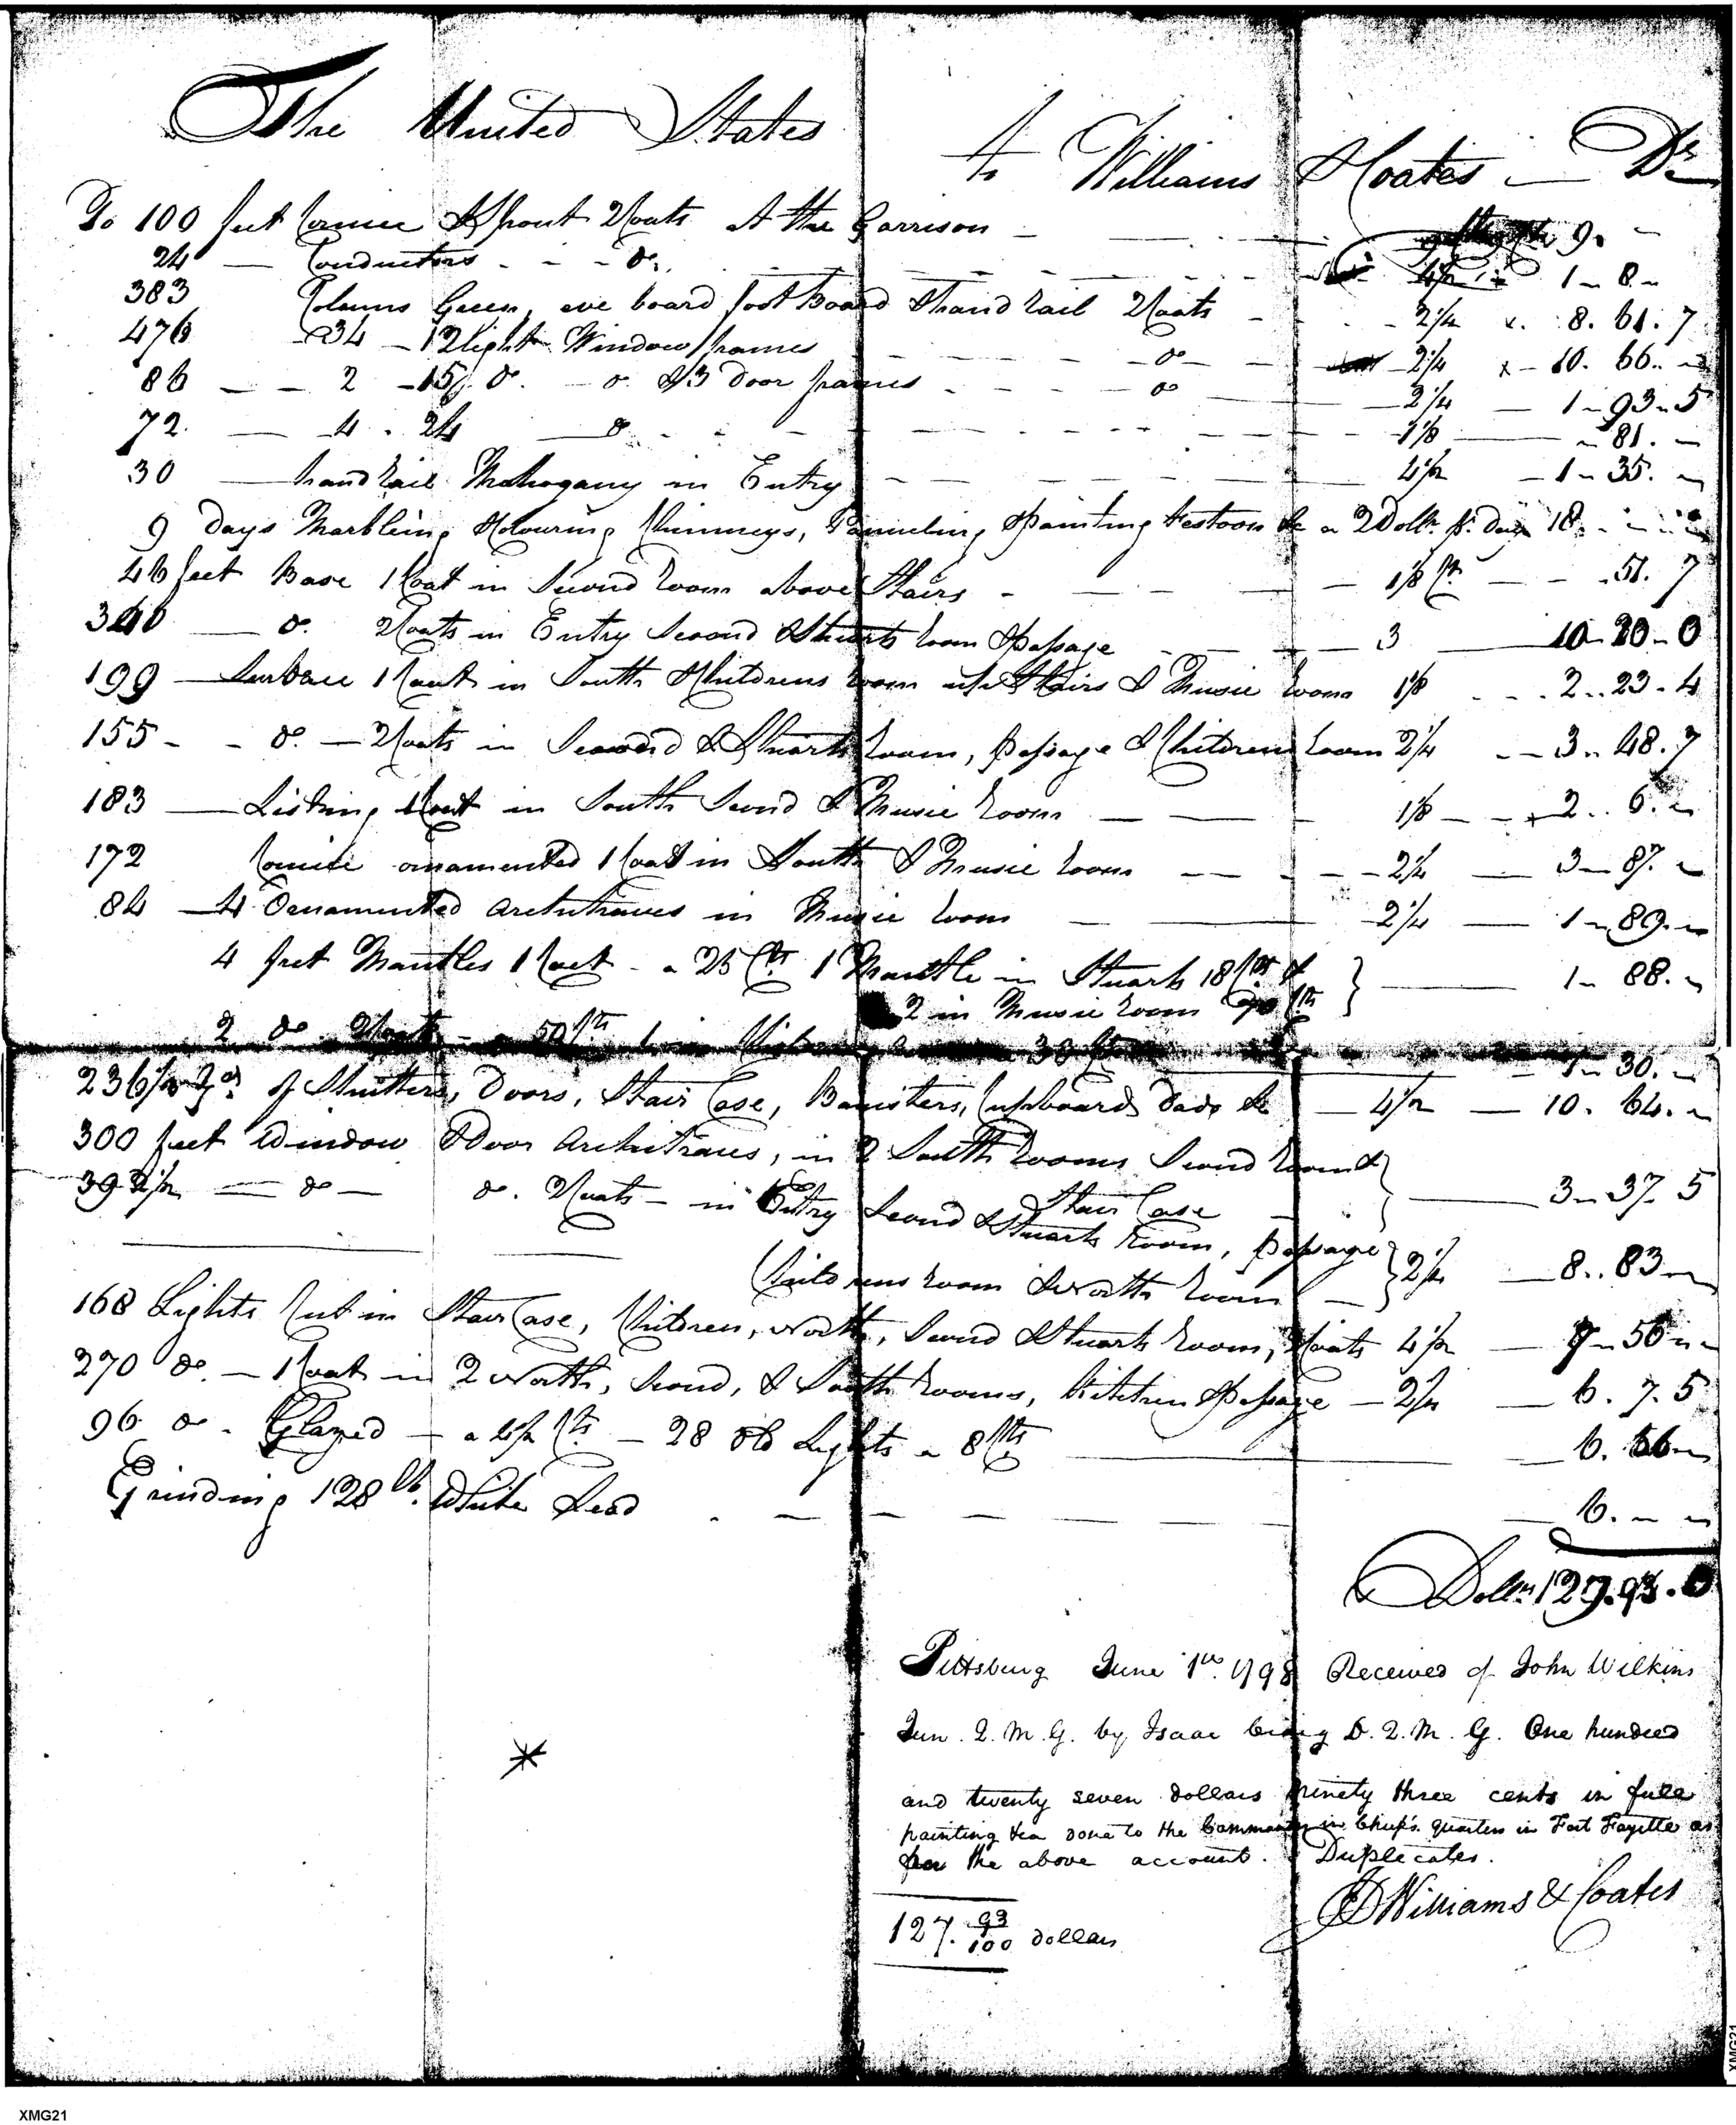 The United States To Williams & Coates — Dr
To 100 feet Cornice & Spout 2 Coats at the Garrison — 9. –
24 — Conductors - - - do. 4½ 1 – 8 –
383 Colums Green, eve board foot Board & hand rail 2 Coats - 2¼ x. 8. 61. 7
476 34 – 12 light Window frames — do — 2¼ x – 10. 66. –
86 — 2 – 15 do. — do & 3 Door frames - - - do — 2¼ — 1 – 93 – 5
72. — 4 . 24 — do - - - 1⅛ — – 81. –
30 — hand rail Mahogany in Entry — 4½ – 1 – 35. –
9 Days Marbling, Colouring Chimneys, Panneling, & painting Festoons &c a 2 Dollr. pr. Day 18. - -
46 feet Base 1 Coat in Second room above Stairs - — 1⅛ Ct. — - .51. 7
340 — do. 2 Coats in Entry Second & Stuarts room & passage — 3 — 10 – 20 – 0
199 — Surbace 1 Coat in South & Childrens room up Stairs & Music room 1⅛ - - . 2 .. 23 . 4
155 - - do. — 2 Coats in Second & Stuarts room, passage & Childrens room 2¼ - – 3 – 48 . 7
183 — Listing 1 Coat in South Second & Music room — 1⅛ — 2 .. 6. –
172 Cornice ornamented 1 Coat in South & Music room — 2¼ — 3 – 87. –
84 – 4 Ornamented Architraves in Music room — 2¼ — 1 – 89. –
4 feet Mantles 1 Coat - a 25 Cts. 1 Mantle in Stuarts 18 Cts & } — 1 – 88. –
2 in Music room 70 Cts
2 do 2 Coats – a 50 Cts 1 in 30 1 – 30. –
236½ Yds of Shutters, Doors, Stair Case, Banisters, Cupboards Dado &c — 4½ — 10. 64. –
300 feet Window & Door Architraves, in 2 South rooms Second room & } — 3 – 37. 5
Stair Case
392½ — do — do. 2 Coats – in Entry Second & Stuarts room, passage } 2¼ — 8.. 83 –
Childrens room & North room —
168 Lights Cut in Stair Case, Children, North, Second & Stuarts room, 2 Coats 4½ — 7 – 56 – –
270 do. — 1 Coat in 2 North, Second, & South rooms, Kitchen & passage — 2¼ — 6. 7. 5
96 do. Glazed — a 4½ Cts. — 28 old Lights a 8 Cts — 6. 56 –
Grinding 128 lb. White Lead - — 6. – –
Dollrs 127.93.0
Pittsburg June 1st. 1798 Received of John Wilkins
Jun. Q. M. G. by Isaac Craig D. Q. M. G. One hundred
and twenty seven dollars ninety three cents in full
painting &ca done to the Commander in Chief's quarters in Fort Fayette as
per the above account. Duplicates.
Williams & Coates
127. 93/100 dollars
XMG21
XMG21